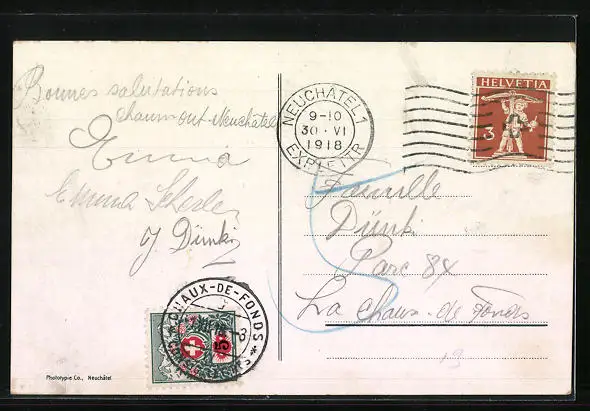 Bonnes salutations
Chaumont Neuchâtel
Emma
Emma
J Dünki
NEUCHATEL 1
9-10
30·VI
1918
HELVETIA
3
Famille
Dünki
Parc 84
La Chaux-de-Fonds
CHAUX-DE-FONDS
5
Phototypie Co., Neuchâtel